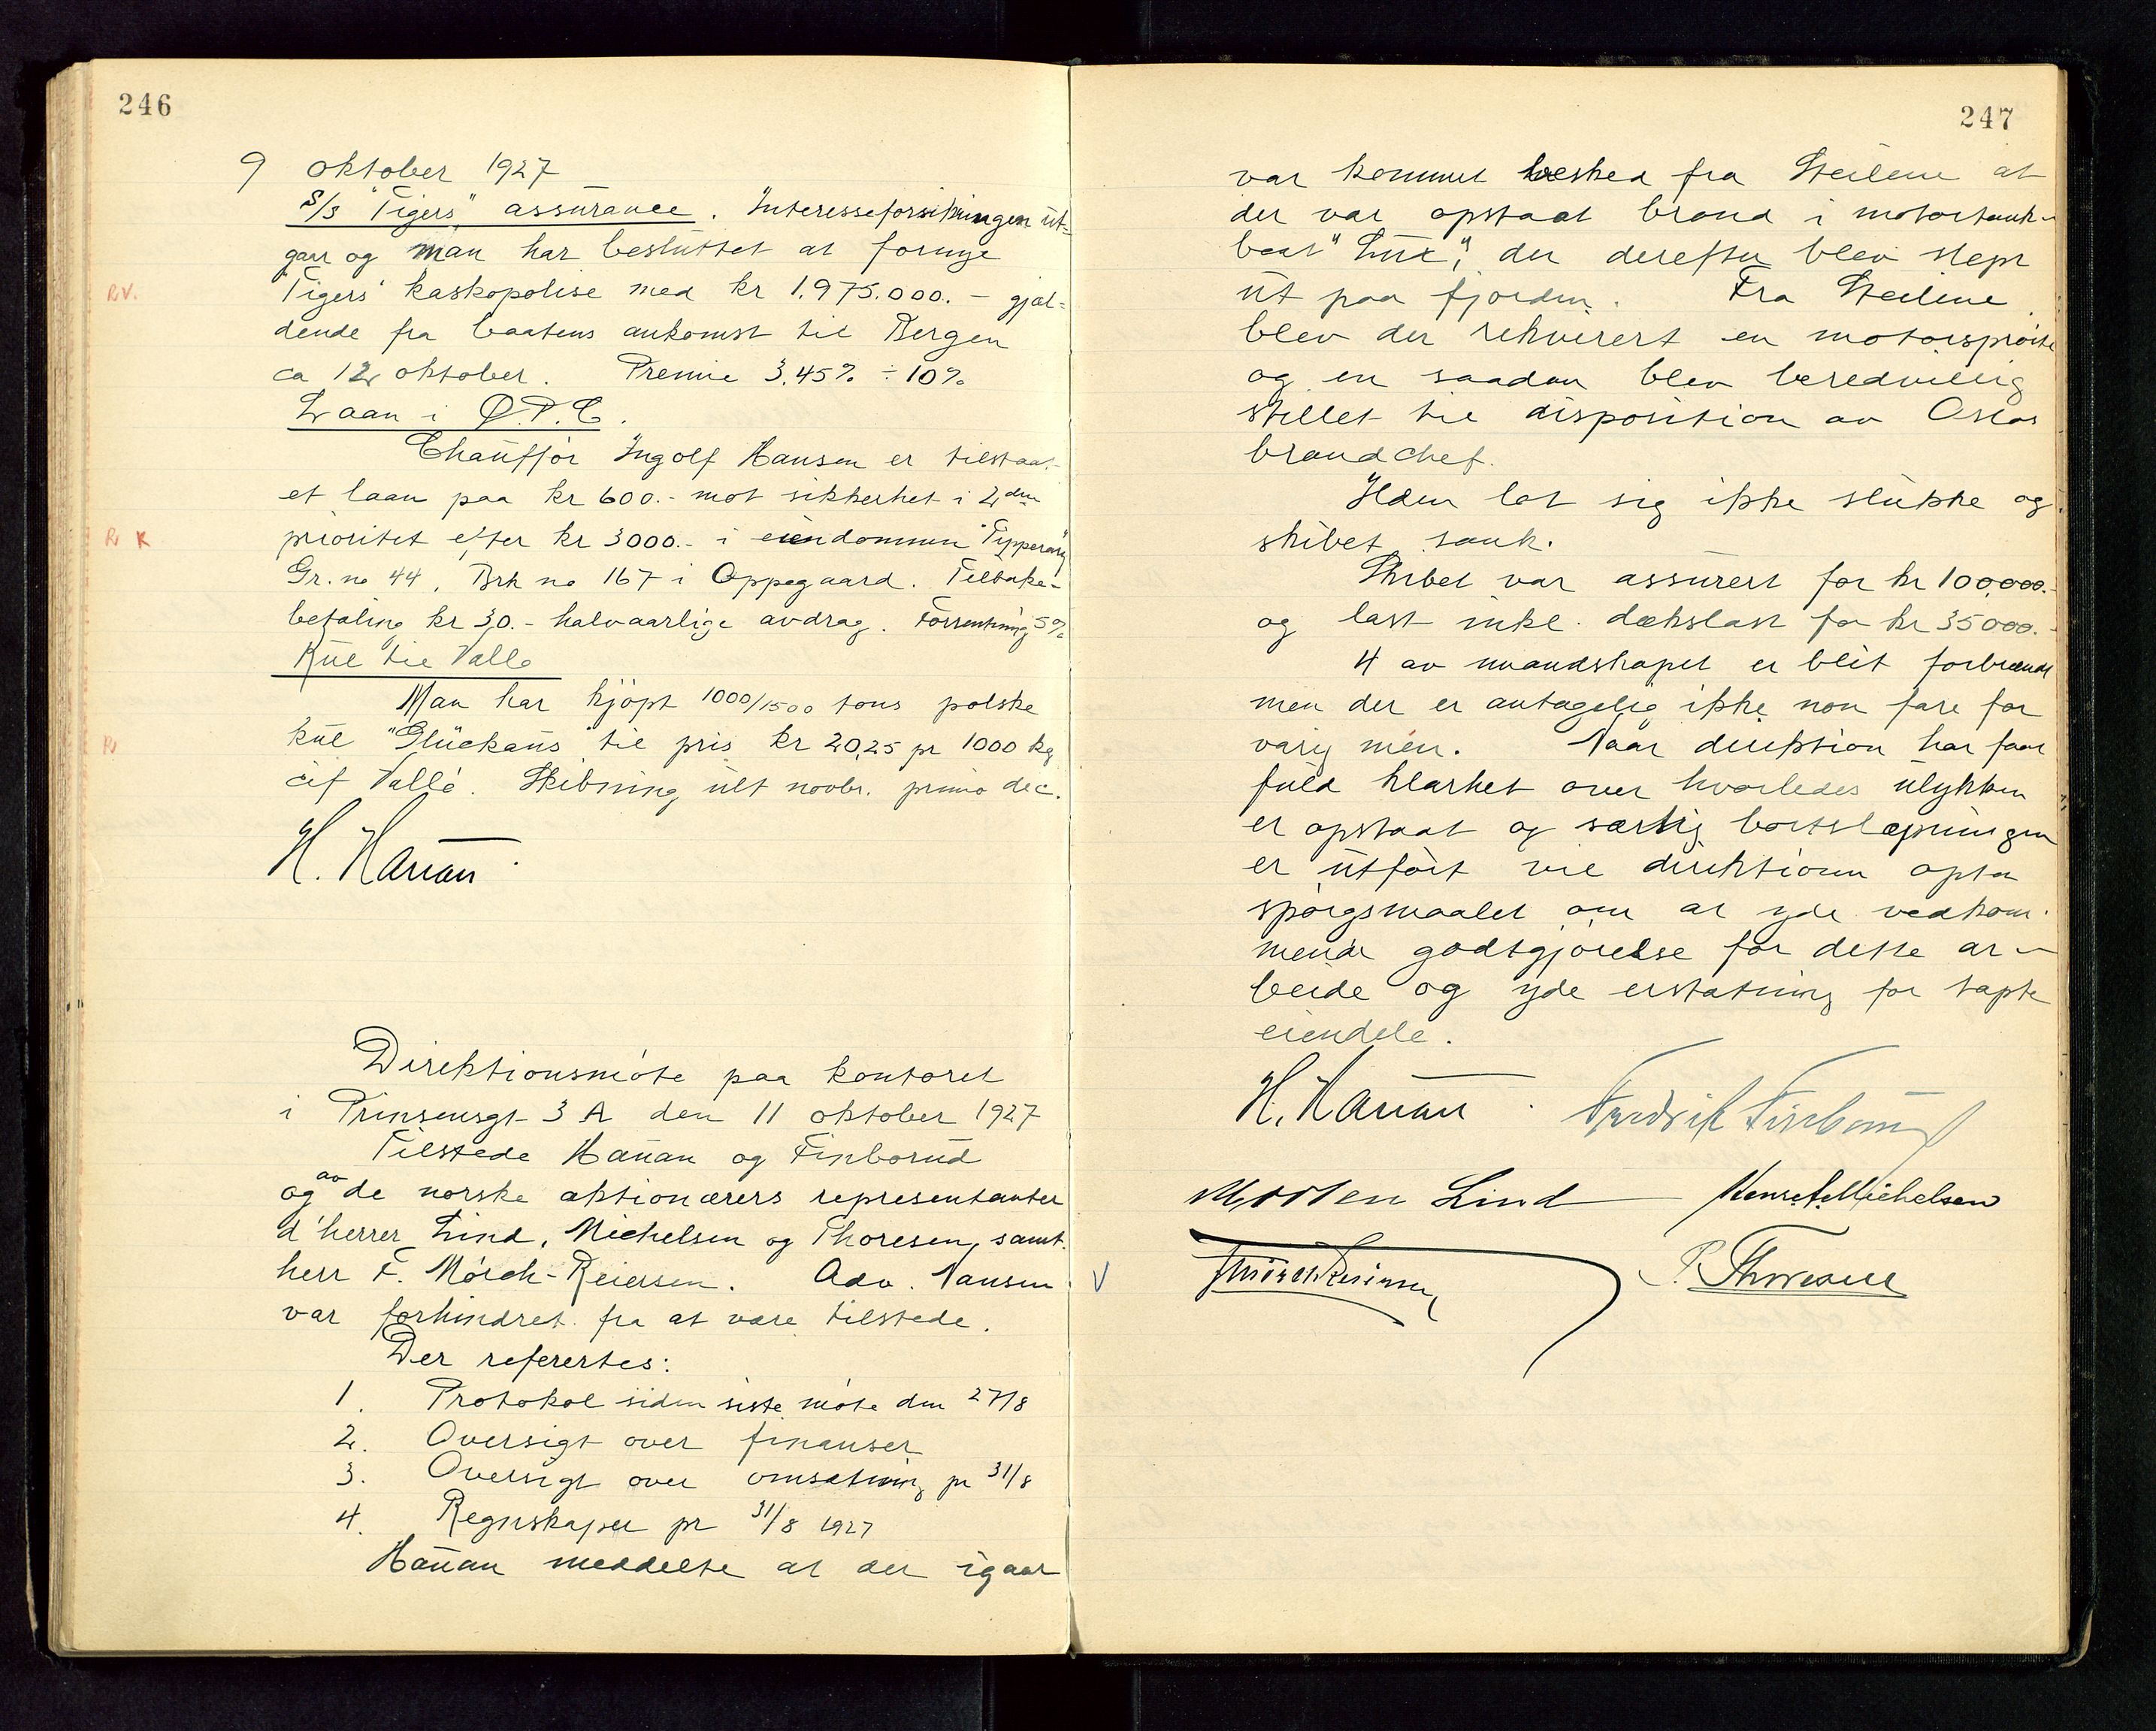 246
9 oktober 1927
S/S "Tigers" assurance. Interesseforsikringen ut-
gaar og man har besluttet at fornye
"Tigers" kaskopolise med kr 1.975.000.- gjæl-
RV.
dende fra baatens ankomst til Bergen
ca 12 oktober. Premie 3,45% ÷ 10%
Laan i Ø.P.C.
Chauffør Ingolf Hansen er tilstaa-
et laan paa kr 600.- mot sikkerhet i 2den
prioritet efter kr 3000.- i eiendommen "Tipperary"
R K
Gr. no 44, Brk no 167 i Oppegaard. Tilbake-
betaling kr 30.- halvaarlige avdrag. Forrentning 5%
Kul til Vallø
Man har kjøpt 1000/1500 tons polske
kul "Glückaus" til pris kr 20,25 pr 1000 kg
R
cif Vallø. Skibning ult novbr. primo dec.
H. Harian
Direktionsmøte paa kontoret
i Prinsensgt 3 A den 11 oktober 1927
Tilstede Hanan og Finborud
og av de norske aktionærers representanter
d'herrer Lind, Michelsen og Thoresen, samt
herr F. Mörch-Reiersen. Adv. Nansen
var forhindret fra at være tilstede.
Der refererte​s:
1. Protokol siden siste møte den 27/8
2. Oversigt over finanser
3. Oversigt over omsætning pr 31/8
4. Regnskaper pr 31/8 1927
Hanan meddelte at der igaar
247
var kommet besked fra Steilene at
der var opstaat brand i motortank-
baat "Lux", der derefter blev slept
ut paa fjorden. Fra Steilene
blev der rekvirert en motorsprøite
og en saadan blev beredvillig
stillet til disposition av Oslos
brandchef.
Ilden lot sig ikke slukke og
skibet sank.
Skibet var assurert for kr 100,000.-
og last inkl. dækslast for kr 35000.-
4 av mandskapet er blit forbrændt
men der er antagelig ikke non fare for
varig mén. Naar direktion har faat
fuld klarhet over hvorledes ulykken
er opstaat og særlig bortslæpningen
er utført vil direktionen opta
spørgsmaalet om at yde vedkom-
mende godtgjørelse for dette ar-
beide og yde erstatning for tapte
eiendele.
H. Harian Fredrik Finborud
Morten Lind Henr. F. Michelsen
F Mörch Reiersen P. Thoresen